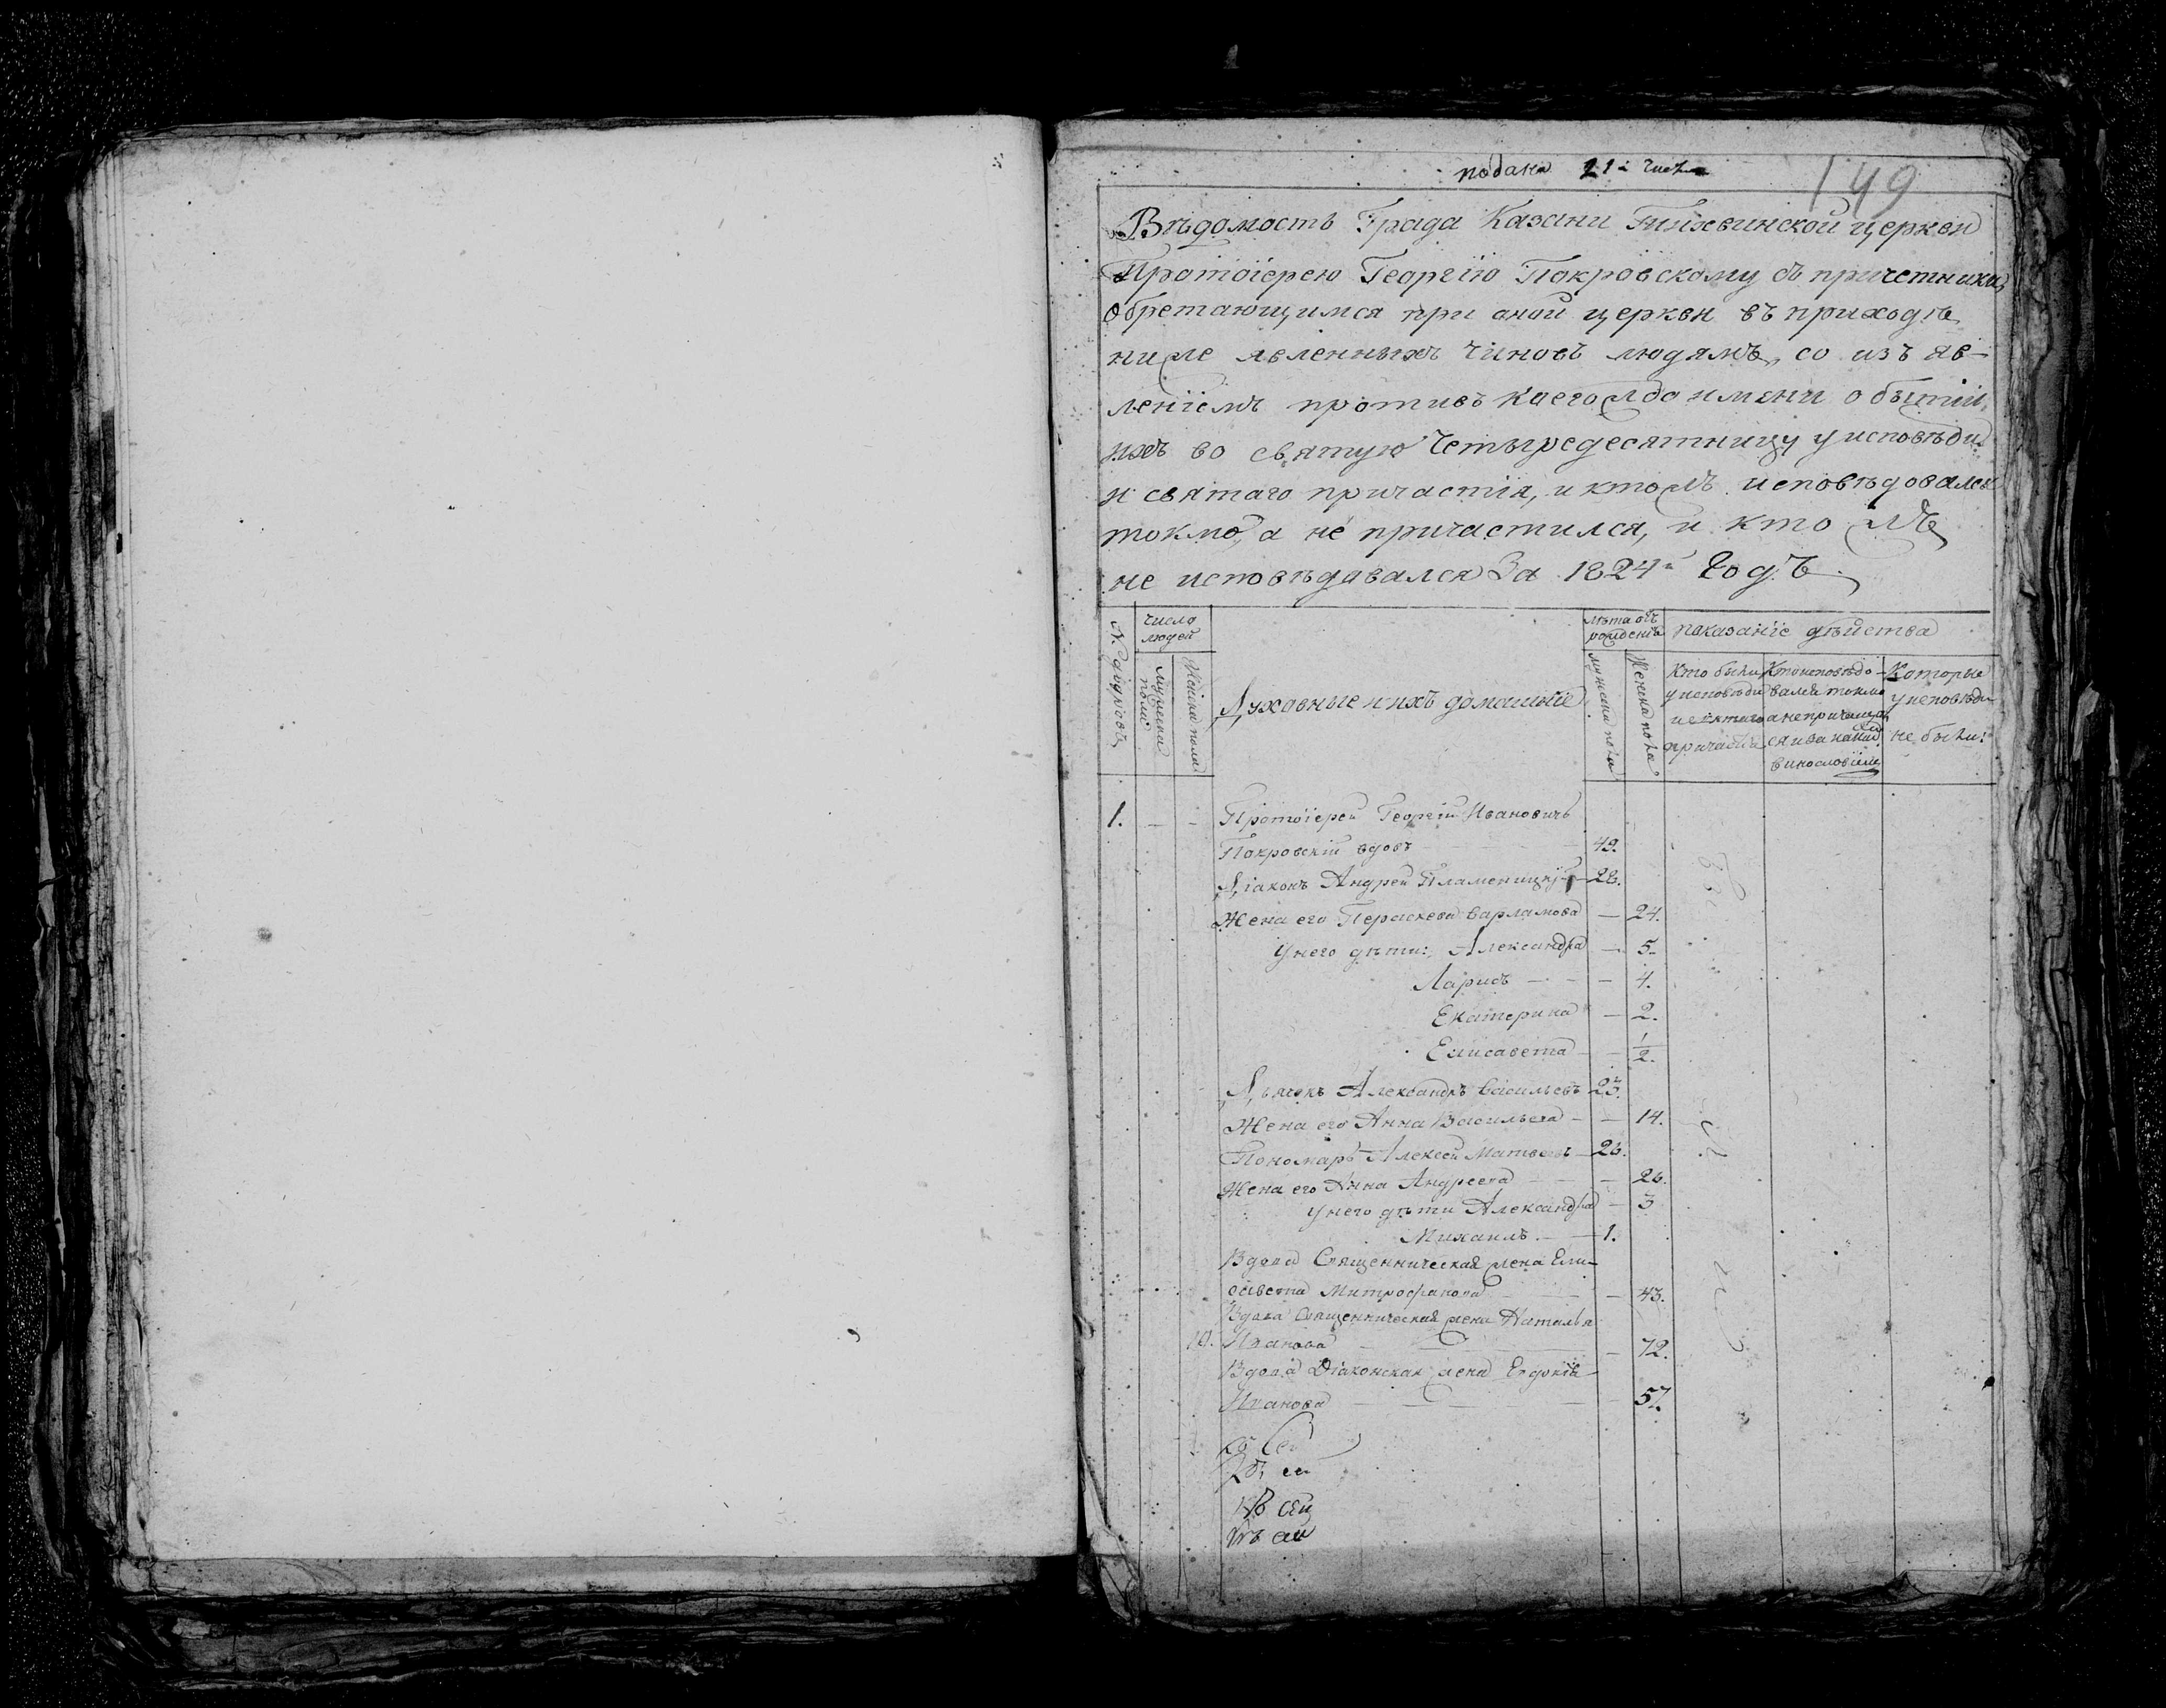 подана 21 числа
149
Вѣдомость Града Казани Тихвинской церкви
Протоіерею Георгію Покровскому съ причетники,
обретающимся при оной церкви въ приходѣ
ниже явленныхъ чиновъ людямъ, со изъ яв-
леніемъ противъ коегождо имени о бытіи
ихъ во святую Четыредесятницу у исповѣди
и святаго причастія, и ктожъ исповѣдовался
токмо, а не причастился, и кто жъ
не исповѣдавался За 1824й Годъ
№ дворовой
число людей
мужеска пола
Женска пола
Духовные и ихъ домашніе
лѣта отъ рожденія
мужеска пола
Женска пола
показаніе дѣйства
Кто были у исповѣди и святаго причастія
Кто исповѣдо- вался токмо а не причащал ся и за какимъ винословіемъ
Которые у исповѣди не были:
1. Протоіерей Георгій Ивановичь
Покровскій вдовъ 49.
Діаконъ Андрей Пламеницкій 28.
Жена его Пераскева Варламова 24.
У него дѣти: Александра 5.
Лариса 4.
Екатерина 2.
Елисавета 1/2.
Дьячокъ Александръ Васильевъ 23.
Жена его Анна Васильева 14.
Пономарь Алексей Матвеевъ 26.
Жена его Анна Андреева 26.
У него дѣти Александра 3
Михаилъ 1.
Вдова Священническая жена Ели-
савета Митрофанова 43.
Вдова Священническая жена Наталья
10. Иванова 72.
Вдова Діаконская жена Евдокія
Иванова 57.